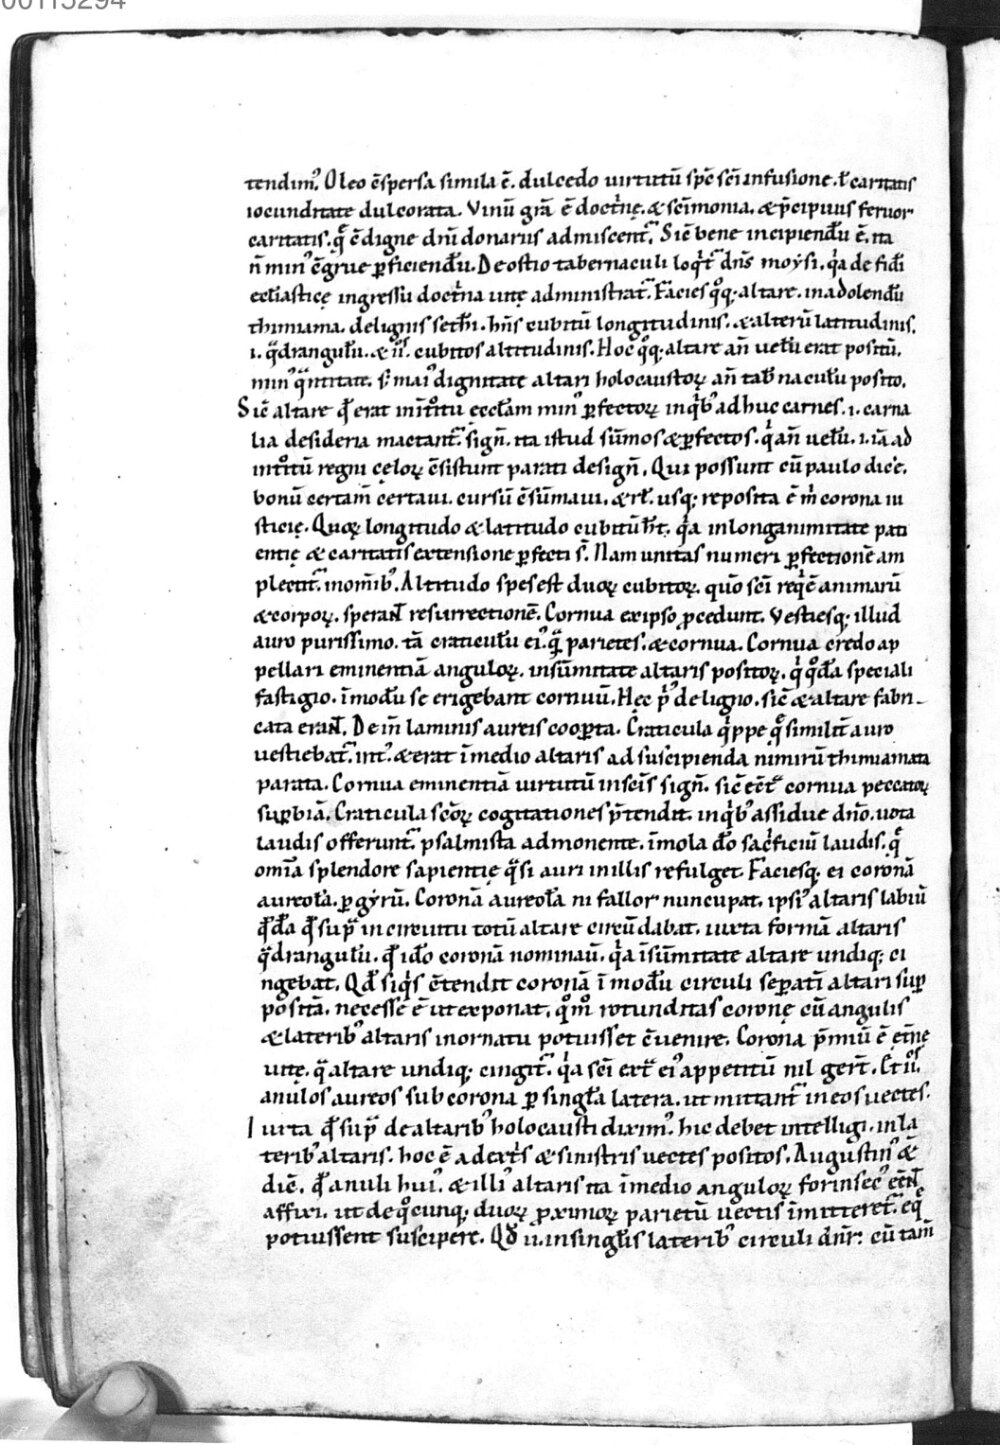 00115294
tendim᾽. Oleo c̄spersa simila ē. dulcedo uirtutū sp̄c sc̄i infusione. ł caritatis
iocunditate dulcorata. Vinū grā ē doct̓nę. & sc̄imonia. & p̄cipuus feruor
caritatis. q̄ ē digne dn̄i donariis admiscent᷑. Sic̄ bene incipiendū ē. ita
n̄ min᾽ c̄grue ꝑficiendū. De ostio tabernaculi loq̇t᷑ dn̄s moẏsi. q̇a de fidi
ecclīasticę ingressu doct̓na uitę administrat᷑. Facies q̊q; altare. in adolendū
thimiama. de lignis sethī. hn̄s cubitū longitudinis. & alterū latitudinis.
.i. q̈drangulū. & ii. cubitos altitudinis. Hoc q̊q; altare an̄ uelū erat positū.
min᾽ q̈ntitate. s; mai᾽ dignitate altari holocaustoꝝ an̄ tab̄naculū posito.
Sic̄ altare qđ erat in int̊itu ecclam min᾽ ꝑfectoꝝ in q̇b᾽ adhuc carnes .i. carna
lia desideria mactant᷑. sign̄. ita istud sūmos & ꝑfectos. q̇ an̄ uelū .i. iā ad
int̊itū regni cęloꝝ c̄sistunt parati design̄. Qui possunt cū paulo dic̄e.
bonū certam̄ certaui. cursū c̄sūmaui. & rł. usq; reposita ē ṁ corona iu
sticię. Quoꝝ longitudo & latitudo cubitū ht̄. q̇a in longanimitate pati
entię & caritatis extensione ꝑfecti s̄. Nam unitas numeri ꝑfectionē am
plectit᷑. in om̄ib᾽. Altitudo spes est duoꝝ cubitoꝝ. quo sc̄i req̇ē animarū
& corpoꝝ. sperant resurrectionē. Cornua ex ipso ꝓcedunt. Vestiesq; illud
auro purissimo. tā craticulā ei᾽. q̈ parietes. & cornua. Cornua credo ap
pellari eminentiā anguloꝝ. in sūmitate altaris positoꝝ. q̇ q̊dā speciali
fastigio. ī modū se erigebant cornuū. Hęc p̓ de ligno. sic̄ & altare fabri-
cata erant. Dein̄ laminis aureis cooꝑta. Craticula q̇ppe q̄ similit̄ auro
uestiebat᷑. int᾽ & erat ī medio altaris ad suscipienda nimirū thimiamata
parata. Cornua eminentiā uirtutū in sc̄is sign̄. sic̄ ec̄t cornua peccatoꝝ
suꝑbiā. Craticula sc̄oꝝ cogitationes p̄tendit. in q̇b᾽ assidue dn̄o. uota
laudis offerunt᷑. psalmista admonente. īmola dō sac̓ficiū laudis. q̄
om̄ia splendore sapientię q̈si auri in illis refulget. Faciesq; ei coronā
aureolā. ꝑ gẏrū. Coronā aureolā ni fallor nuncupat. ipsi᾽ altaris labiū
qđdā qđ sup̄ in circuitu totū altare circūdabat. iuxta formā altaris
q̈drangulū. qđ idō coronā nominauı̄. q̇a ī sūmitate altare undiq; ci
ngebat. Qđ siq̇s c̄tendit coronā ī modū circuli seꝑatī altari suꝑ
positā. necesse ē ut exponat. q̊m̊ rotunditas coronę cū angulis
& laterib᾽ altaris in ornatu potuisset c̄uenire. Corona p̄miū ē ęt̄nę
uitę. q̈ altare undiq; cingit᷑. q̇a sc̄i ext̄ ei᾽ appetitū nil ger̄t. Et ii.
anulos aureos sub corona ꝑ singła latera. ut mittant᷑ in eos uectes.
Iuxta qđ sup̄ de altarib᾽ holocausti dixim᾽. hic debet intelligi. in la
terib᾽ altaris. hoc ē a dext̓s & sinistris uectes positos. Augustin᾽ &
dic̄. qđ anuli hui᾽. & illi᾽ altaris ita ī medio anguloꝝ forinsec᾽ ec̄nt
affixi. ut de q̊cunq; duoꝝ ꝓximoꝝ parietū uectis īmitteret᷑. eq̄
potuissent suscipere. Qđ ii. in singlis laterib᾽ circuli dn̄r: cū tam̄